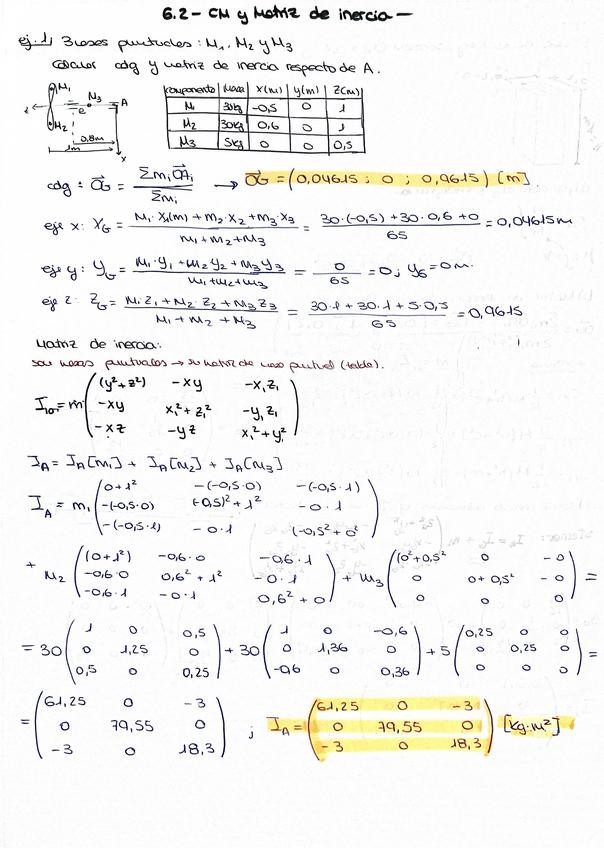 6.2- CM y Matriz de inercia -
ej. 1, 3 masas puntuales: M1, M2 y M3
Calcular cdg y matriz de inercia respecto de A.
M1
M3
A
z
e
M2
0,8m
1m
x
componente masa x(m) y(m) z(m)
M1 30kg -0,5 0 1
M2 30kg 0,6 0 1
M3 5kg 0 0 0,5
cdg: OG = Σmi OAi / Σmi → OG = (0,04615 ; 0 ; 0,9615) [m]
eje x: XG = (M1·X1(m) + m2·X2 + m3·X3) / (m1+m2+m3) = (30·(-0,5)+30·0,6+0) / 65 = 0,04615m
eje y: YG = (M1·Y1+M2Y2+M3Y3) / (M1+M2+M3) = 0/65 = 0; YG = 0m.
eje z: ZG = (M1·Z1+M2·Z2+M3Z3) / (M1+M2+M3) = (30·1+30·1+5·0,5) / 65 = 0,9615
Matriz de inercia:
son masas puntuales → su matriz de masa puntual (tabla).
(y²+z²) -xy -x1z1
I10 = m -xy x1²+z1² -y1z1
-xz -yz x1²+y1²
IA = IA[M1] + IA[M2] + IA[M3]
0+1² -(-0,5·0) -(-0,5·1)
IA = m1 -(-0,5·0) (-0,5)²+1² -0·1
-(-0,5·1) -0·1 (-0,5²+0²
+ M2 (0+1²) -0,6·0 -0,6·1 + m3 (0²+0,5² 0 -0
-0,6·0 0,6²+1² -0·1 0 0+0,5² -0 =
-0,6·1 -0·1 0,6²+0 0 0 0
1 0 0,5 1 0 -0,6 0,25 0 0
= 30 0 1,25 0 + 30 0 1,36 0 + 5 0 0,25 0 =
0,5 0 0,25 -0,6 0 0,36 0 0 0
61,25 0 -3 61,25 0 -3
= 0 79,55 0 ; IA = 0 79,55 0 [kg·m²]
-3 0 18,3 -3 0 18,3